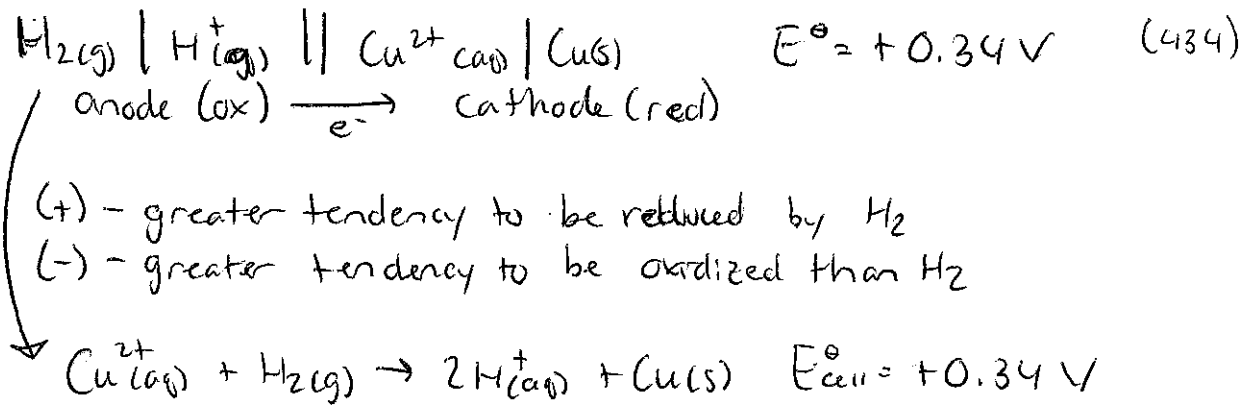 H₂(g) | H⁺(aq) || Cu²⁺(aq) | Cu(s) E⊖ = +0.34 V (434)
anode (ox) ⟶ cathode (red)
e⁻
(+) - greater tendency to be reduced by H₂
(-) - greater tendency to be oxidized than H₂
Cu²⁺(aq) + H₂(g) → 2H⁺(aq) + Cu(s) E⊖cell = +0.34 V